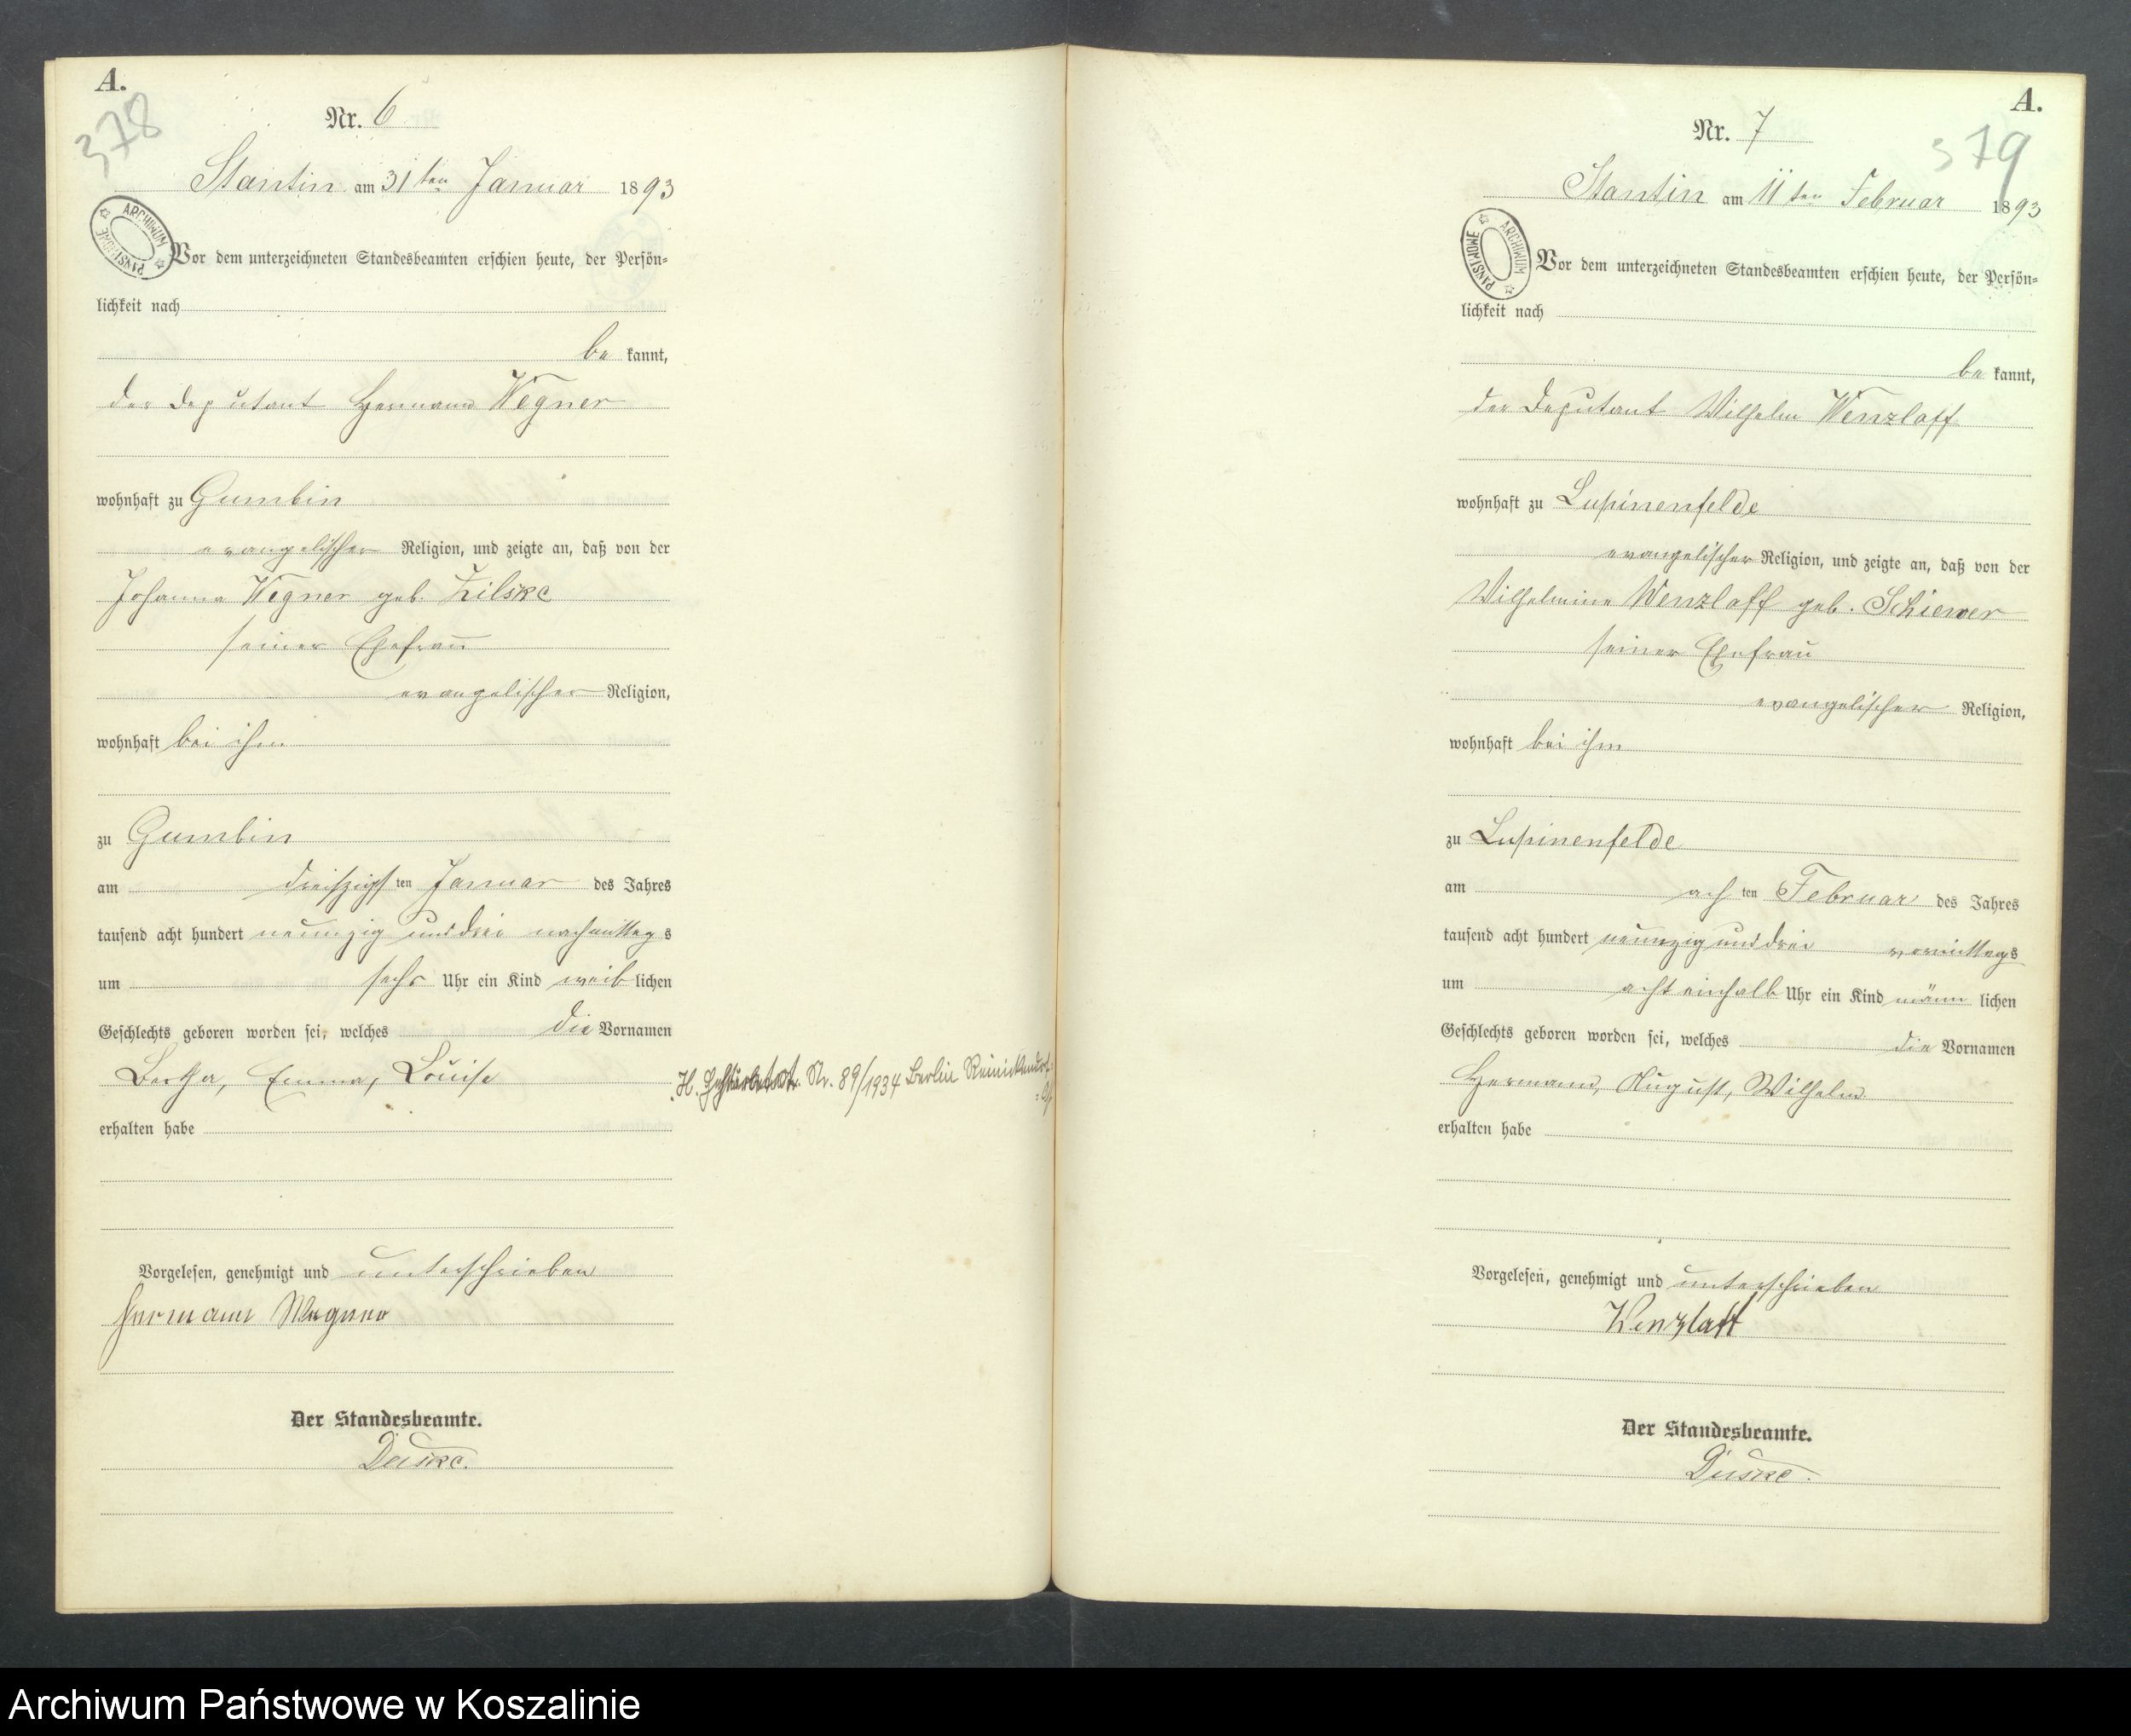 A.
378
Nr. 6
Stantin am 31ten Januar 1893
ARCHIWUM PAŃSTWOWE
Vor dem unterzeichneten Standesbeamten erschien heute, der Persön=
lichkeit nach
be kannt,
der Deputant Hermann Wegner
wohnhaft zu Gumbin
evangelischer Religion, und zeigte an, daß von der
Johanna Wegner geb. Zilske
seiner Ehefrau
evangelischer Religion,
wohnhaft bei ihm
zu Gumbin
am dreißigsten Januar des Jahres
tausend acht hundert neunzig und drei nachmittags
um sechs Uhr ein Kind weiblichen
Geschlechts geboren worden sei, welches die Vornamen
Bertha, Emma, Louise
erhalten habe
Vorgelesen, genehmigt und unterschrieben
Hermann Wegner
Der Standesbeamte.
H. Nr. 89/1934 Berlin Reinickendorf
A.
379
Nr. 7
Stantin am 11ten Februar 1893
ARCHIWUM PAŃSTWOWE
Vor dem unterzeichneten Standesbeamten erschien heute, der Persön=
lichkeit nach
be kannt,
der Deputant Wilhelm Wenzlaff
wohnhaft zu Lupinenfelde
evangelischer Religion, und zeigte an, daß von der
Wilhelmine Wenzlaff geb. Schiewer
seiner Ehefrau
evangelischer Religion,
wohnhaft bei ihm
zu Lupinenfelde
am achten Februar des Jahres
tausend acht hundert neunzig und drei vormittags
um acht einhalb Uhr ein Kind männlichen
Geschlechts geboren worden sei, welches die Vornamen
Hermann, August, Wilhelm
erhalten habe
Vorgelesen, genehmigt und unterschrieben
Wenzlaff
Der Standesbeamte.
Archiwum Państwowe w Koszalinie